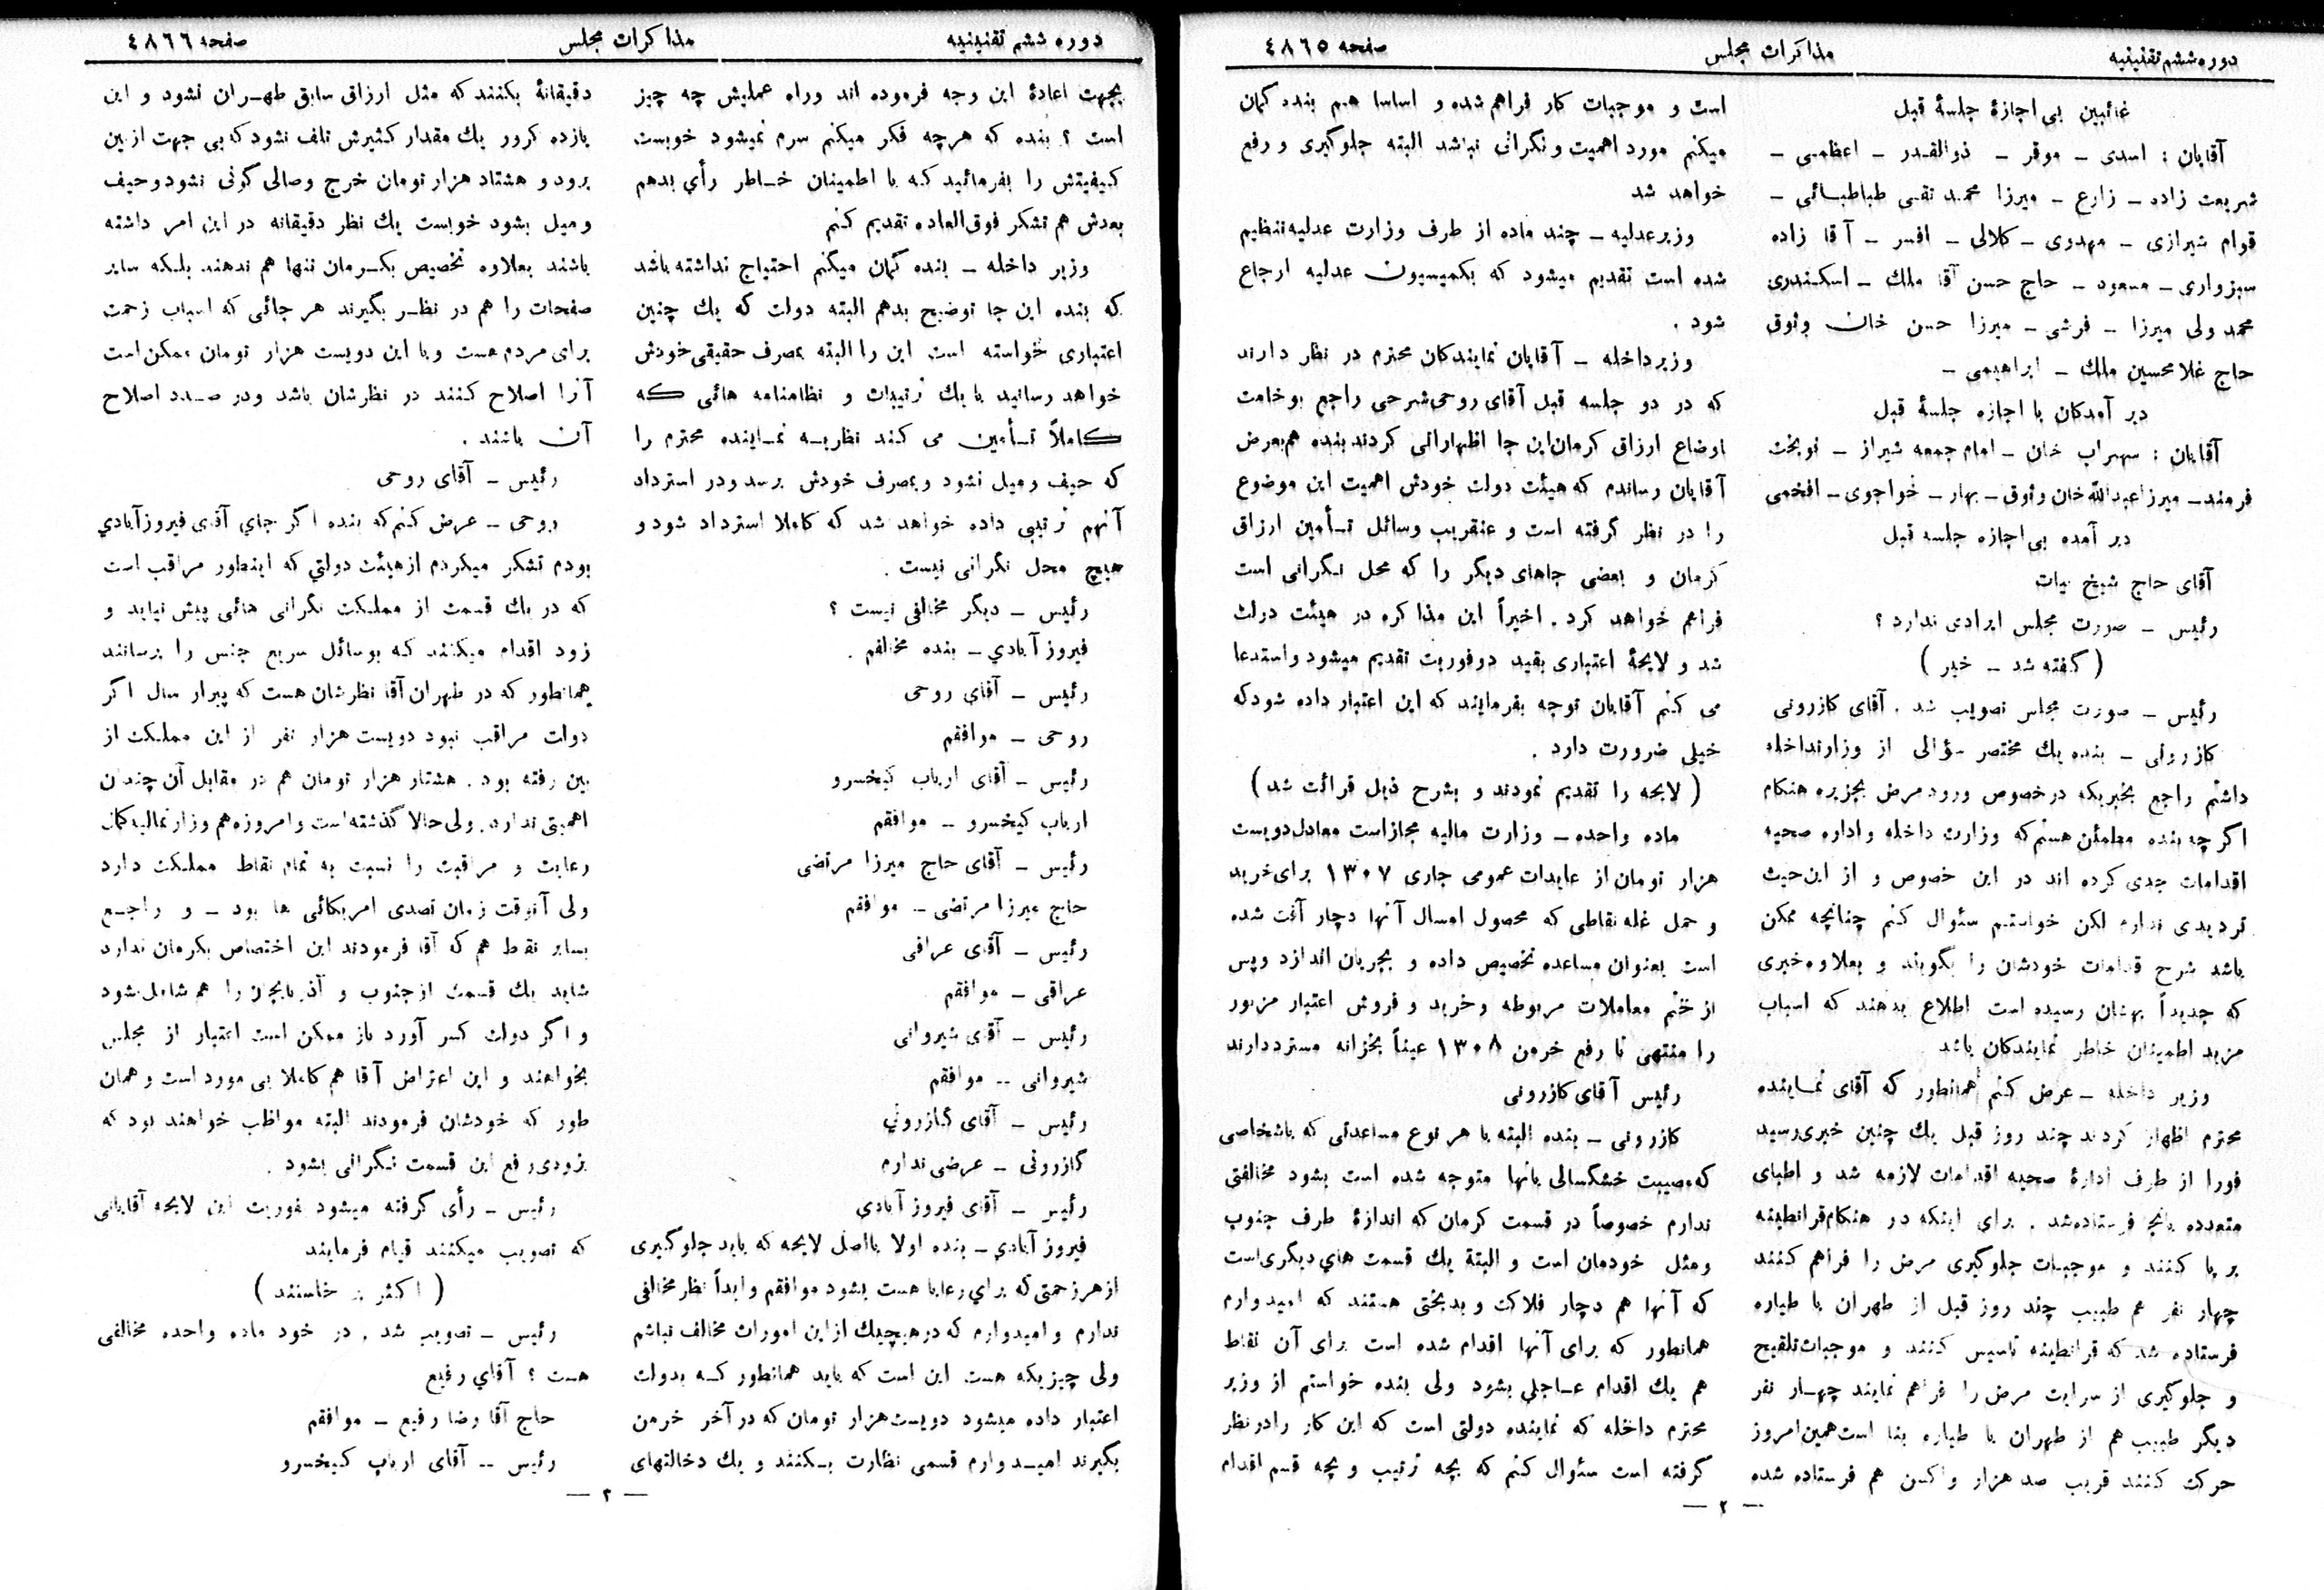 دوره ششم تقنینیه
مذاکرات مجلس
صفحه ٤٨٦٥
غائبین بی اجازهٔ جلسهٔ قبل
آقایان : اسدی – موقر – ذوالقدر – اعظمی –
شریعت زاده – زارع – میرزا محمد تقی طباطبائی –
قوام شیرازی – مهدوی – کلالی – افسر – آقا زاده
سبزواری – مسعود – حاج حسن آقا ملك – اسکندری
محمد ولی میرزا – فرشی – میرزا حسن خان وثوق
حاج غلامحسین ملك – ابراهیمی –
دیر آمدکان با اجازه جلسهٔ قبل
آقایان : سهراب خان – امام جمعه شیراز – نوبخت
فرمند – میرزا عبدالله خان وثوق – بهار – خواجوی – افخمی
دیر آمده بی اجازه جلسه قبل
آقای حاج شیخ بیات
رئیس – صورت مجلس ایرادی ندارد ؟
( گفته شد – خیر )
رئیس – صورت مجلس تصویب شد . آقای کازرونی
کازرونی – بنده یك مختصر سؤالی از وزارتداخله
داشتم راجع بخبریکه درخصوص ورود مرض بجزیره هنکام
اگر چه بنده مطمئن هستم که وزارت داخله و اداره صحیه
اقدامات جدی کرده اند در این خصوص و از این حیث
تردیدی ندارم لکن خواستم سئوال کنم چنانچه ممکن
باشد شرح قدامات خودشان را بگویند و بعلاوه خبری
که جدیداً بهشان رسیده است اطلاع بدهند که اسباب
مزید اطمینان خاطر نمایندکان باشد
وزیر داخله – عرض کنم همانطور که آقای نماینده
محترم اظهار کردند چند روز قبل یك چنین خبری رسید
فورا از طرف ادارهٔ صحیه اقدامات لازمه شد و اطبای
متعدده بانجا فرستاده شد . برای اینکه در هنکام قرانطینه
بر پا کنند و موجبات جلوگیری مرض را فراهم کنند
چهار نفر هم طبیب چند روز قبل از طهران با طیاره
فرستاده شد که قرانطینه تاسیس کنند و موجبات تلقیح
و جلوگیری از سرایت مرض را فراهم نمایند چهار نفر
دیگر طبیب هم از طهران با طیاره بنا است همین امروز
حرکت کنند قریب صد هزار واکسن هم فرستاده شده
است و موجبات کار فراهم شده و اساسا هم بنده گمان
میکنم مورد اهمیت و نگرانی نباشد البته جلوگیری و رفع
خواهد شد
وزیر عدلیه – چند ماده از طرف وزارت عدلیه تنظیم
شده است تقدیم میشود که بکمیسیون عدلیه ارجاع
شود .
وزیر داخله – آقایان نمایندکان محترم در نظر دارند
که در دو جلسه قبل آقای روحی شرحی راجع بوخامت
اوضاع ارزاق کرمان این جا اظهاراتی کردند بنده هم بعرض
آقایان رساندم که هیئت دولت خودش اهمیت این موضوع
را در نظر گرفته است و عنقریب وسائل تأمین ارزاق
کرمان و بعضی جاهای دیگر را که محل نگرانی است
فراهم خواهد کرد . اخیراً این مذاکره در هیئت دولت
شد و لایحهٔ اعتباری بقید دو فوریت تقدیم میشود و استدعا
می کنم آقایان توجه بفرمایند که این اعتبار داده شود که
خیلی ضرورت دارد .
( لایحه را تقدیم نمودند و بشرح ذیل قرائت شد )
ماده واحده – وزارت مالیه مجاز است معادل دویست
هزار تومان از عایدات عمومی جاری ۱۳۰۷ برای خرید
و حمل غله نقاطی که محصول امسال آنها دچار آفت شده
است بعنوان مساعده تخصیص داده و بجریان اندازد و پس
از ختم معاملات مربوطه و خرید و فروش اعتبار مزبور
را منتهی تا رفع خرمن ۱۳۰۸ عیناً بخزانه مسترد دارند
رئیس آقای کازرونی
کازرونی – بنده البته با هر نوع مساعدتی که باشخاصی
که مصیبت خشگسالی بانها متوجه شده است بشود مخالفتی
ندارم خصوصاً در قسمت کرمان که اندازهٔ طرف جنوب
و مثل خودمان است و البته یك قسمت های دیگری است
که آنها هم دچار فلاکت و بدبختی هستند که امیدوارم
همانطور که برای آنها اقدام شده است برای آن نقاط
هم یك اقدام عاجلی بشود ولی بنده خواستم از وزیر
محترم داخله که نماینده دولتی است که این کار را در نظر
گرفته است سئوال کنم که بچه ترتیب و بچه قسم اقدام
— ۲ —
دوره ششم تقنینیه
مذاکرات مجلس
صفحه ٤٨٦٦
بجهت اعادهٔ این وجه فرموده اند و راه عملیش چه چیز
است ؟ بنده که هر چه فکر میکنم سرم نمیشود خوبست
کیفیتش را بفرمائید که با اطمینان خاطر رأی بدهم
بعدش هم تشکر فوق العاده تقدیم کنم
وزیر داخله – بنده گمان میگنم احتیاج نداشته باشد
که بنده این جا توضیح بدهم البته دولت که یك چنین
اعتباری خواسته است این را البته بمصرف حقیقی خودش
خواهد رسانید با یك ترتیبات و نظامنامه هائی که
کاملاً تأمین می کند نظریه نماینده محترم را
که حیف و میل نشود و بمصرف خودش برسد و در استرداد
آنهم ترتیبی داده خواهد شد که کاملا استرداد شود و
هیچ محل نگرانی نیست .
رئیس – دیگر مخالفی نیست ؟
فیروز آبادي – بنده مخالفم .
رئیس – آقای روحی
روحی – موافقم
رئیس – آقای ارباب کیخسرو
ارباب کیخسرو – موافقم
رئیس – آقای حاج میرزا مرتضی
حاج میرزا مرتضی – موافقم
رئیس – آقای عراقی
عراقی – موافقم
رئیس – آقای شیروانی
شیروانی – موافقم
رئیس – آقای کازرونی
کازرونی – عرضی ندارم
رئیس – آقای فیروز آبادي
فیروز آبادي – بنده اولا با اصل لایحه که باید جلوگیری
از هر زحمتی که براي رعایا هست بشود موافقم و ابداً نظر مخالفی
ندارم و امیدوارم که در هیچیك از این امورات مخالف نباشم
ولی چیزیکه هست این است که باید همانطور که بدولت
اعتبار داده میشود دویست هزار تومان که در آخر خرمن
بگیرند امیدوارم قسمی نظارت بکنند و یك دخالتهای
دقیقانهٔ بکنند که مثل ارزاق سابق طهران نشود و این
یازده کرور یك مقدار کثیرش تلف نشود که بی جهت از بین
برود و هشتاد هزار تومان خرج وصالی گونی نشود و حیف
و میل بشود خوبست یك نظر دقیقانه در این امر داشته
باشند بعلاوه تخصیص بکرمان تنها هم ندهند بلکه سایر
صفحات را هم در نظر بگیرند هر جائی که اسباب زحمت
برای مردم هست و با این دویست هزار تومان ممکن است
آنرا اصلاح کنند در نظرشان باشد و در صدد اصلاح
آن باشند .
رئیس – آقای روحی
روحی – عرض کنم که بنده اگر جاي آقای فیروز آبادي
بودم تشکر میکردم از هیئت دولتي که اینطور مراقب است
که در یك قسمت از مملکت نگرانی هائی پیش نیاید و
زود اقدام میکنند که بوسائل سریع جنس را برسانند
همانطور که در طهران آقا نظرشان هست که پیرار سال اگر
دولت مراقب نبود دویست هزار نفر از این مملکت از
بین رفته بود . هشتار هزار تومان هم در مقابل آن چندان
اهمیتی ندارد . ولی حالا گذشته است و امروزه هم وزارتمالیه کمال
رعایت و مراقبت را نسبت به تمام نقاط مملکت دارد
ولی آنوقت زمان تصدی امریکائی ها بود – و راجع
بسایر نقاط هم که آقا فرمودند این اختصاص بکرمان ندارد
شاید یك قسمت از جنوب و آذربایجان را هم شامل شود
و اگر دولت کسر آورد باز ممکن است اعتبار از مجلس
بخواهند و این اعتراض آقا هم کاملا بی مورد است و همان
طور که خودشان فرمودند البته مواظب خواهند بود که
بزودی رفع این قسمت نگرانی بشود .
رئیس – رأی گرفته میشود بفوریت این لایحه آقایانی
که تصویب میکنند قیام فرمایند
( اکثر بر خاستند )
رئیس – تصویب شد . در خود ماده واحده مخالفی
هست ؟ آقاي رفیع
حاج آقا رضا رفیع – موافقم
رئیس – آقای ارباب کیخسرو
— ۳ —